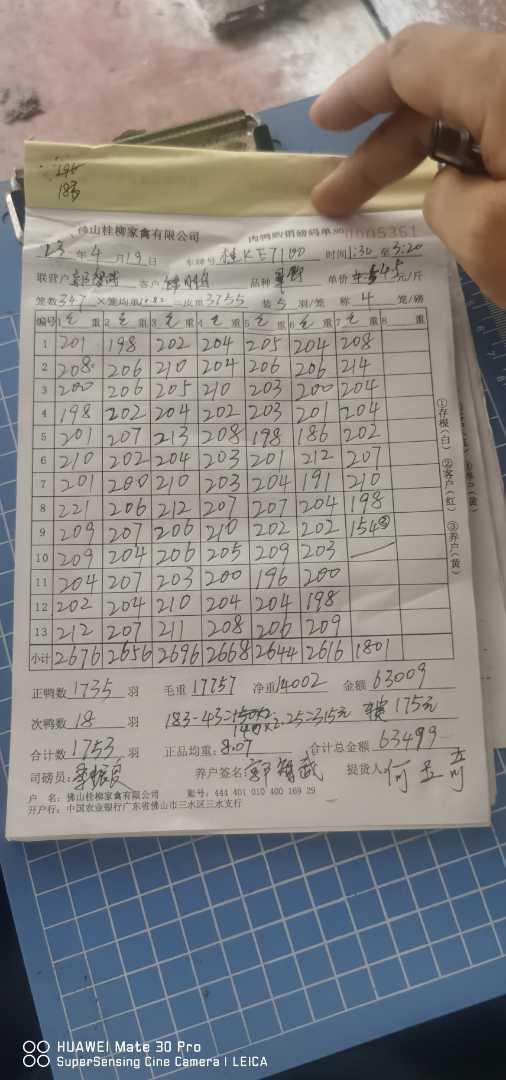 195
183
佛山桂柳家禽有限公司 肉鸭购销磅码单 № 0005361
23 年 4 月 19 日 车牌号 桂KE7100 时间 1:30 至 3:20
联营户 客户 品种 单价 4.5 元/斤
笼数 347 ×笼均重 10.82 =皮重 3755 装 5 羽/笼 称 4 笼/磅
编号 1 毛 重 2 毛 重 3 毛 重 4 毛 重 5 毛 重 6 毛 重 7 毛 重 8 重
1 201 198 202 204 205 204 208
2 208 206 210 204 206 206 214
3 200 206 205 210 203 200 204
4 198 202 204 202 203 201 204
5 201 207 213 208 198 186 202
6 210 202 204 203 201 212 207
7 201 200 210 203 204 191 210
8 221 206 212 207 207 204 198
9 209 207 206 210 202 202 154③
10 209 204 206 205 209 203
11 204 207 203 200 196 200
12 202 204 210 204 204 198
13 212 207 211 208 206 209
小计 2676 2656 2696 2668 2644 2616 1801
①存根(白) ②客户(红) ③养户(黄)
正鸭数 1735 羽 毛重 17757 净重 14002 金额 63009
次鸭数 18 羽 183-43=140×2.25=315元 175元
合计数 1753 羽 正品均重: 8.07 合计总金额 63499
司磅员: 养户签名: 智武 提货人: 何
户 名: 佛山桂柳家禽有限公司 账号: 444 401 010 400 169 29
开户行: 中国农业银行广东省佛山市三水区三水支行
HUAWEI Mate 30 Pro
SuperSensing Cine Camera | LEICA